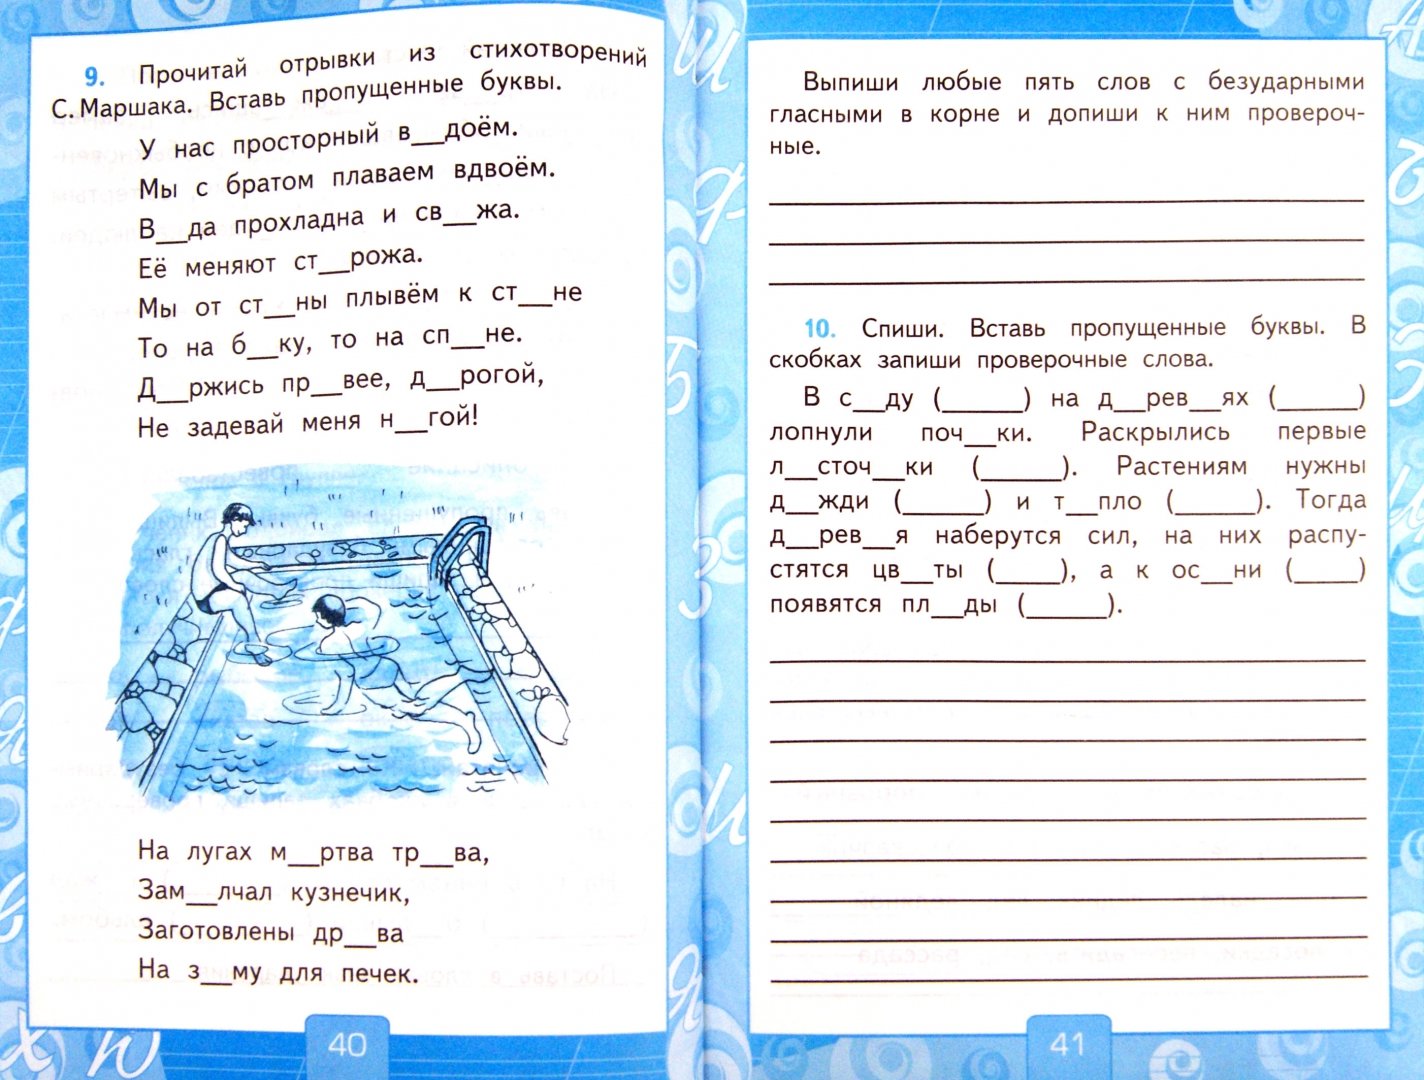 9. Прочитай отрывки из стихотворений
С. Маршака. Вставь пропущенные буквы.
У нас просторный в__доём.
Мы с братом плаваем вдвоём.
В__да прохладна и св__жа.
Её меняют ст__рожа.
Мы от ст__ны плывём к ст__не
То на б__ку, то на сп__не.
Д__ржись пр__вее, д__рогой,
Не задевай меня н__гой!
На лугах м__ртва тр__ва,
Зам__лчал кузнечик,
Заготовлены др__ва
На з__му для печек.
40
Выпиши любые пять слов с безударными
гласными в корне и допиши к ним провероч-
ные.
10. Спиши. Вставь пропущенные буквы. В
скобках запиши проверочные слова.
В с__ду (______) на д__рев__ях (______)
лопнули поч__ки. Раскрылись первые
л__сточ__ки (______). Растениям нужны
д__жди (______) и т__пло (______). Тогда
д__рев__я наберутся сил, на них распу-
стятся цв__ты (_____), а к ос__ни (_____)
появятся пл__ды (______).
41